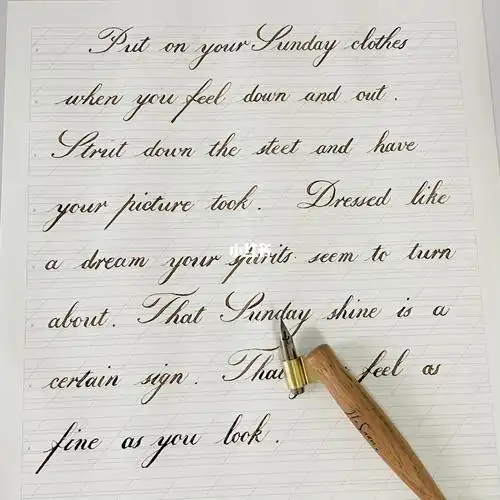 Put on your Sunday clothes
when you feel down and out .
Strut down the steet and have
your picture took . Dressed like
a dream your spirits seem to turn
about . That Sunday shine is a
certain sign . feel as
fine as you look .